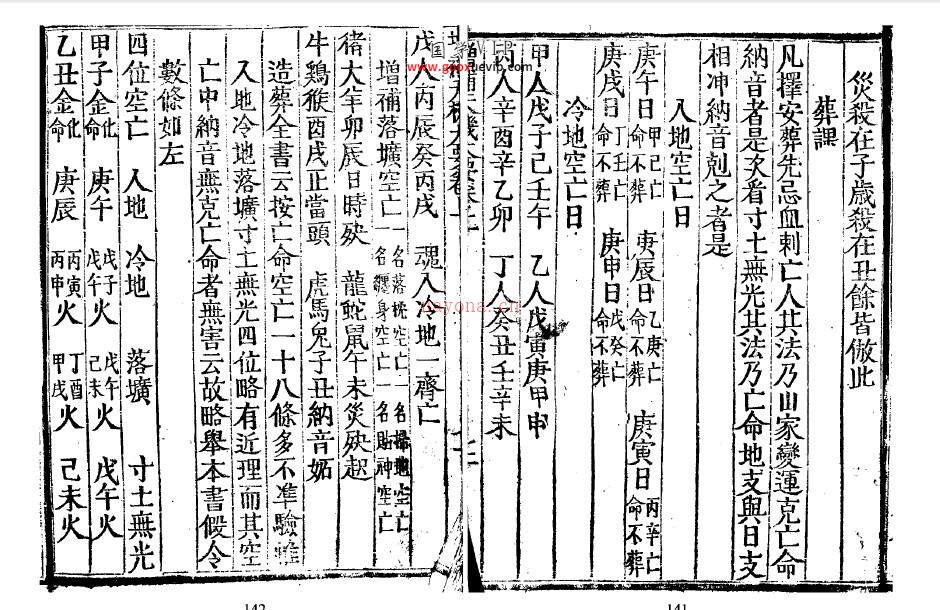 災殺在子歲殺在丑餘皆倣此
葬課
凡擇安葬先忌血刺亡人其法乃山家變運克亡命
納音者是次看寸土無光其法乃亡命地支與日支
相冲納音剋之者是
入地空亡日
庚午日甲己亡命不葬 庚辰日乙庚亡命不葬 庚寅日丙辛亡命不葬
庚戌日丁壬亡命不葬 庚申日戊癸亡命不葬
冷地空亡日
甲人戊子己壬午 乙人戊寅庚甲申
丙人辛酉辛乙卯 丁人癸丑壬辛未
戊人丙辰癸丙戌 魂入冷地一齊亡
增補落壙空亡一名落枕空亡一名掃地空亡一名纒身空亡一名貼神空亡
猪犬羊卯辰日時殃 龍蛇鼠午未災殃起
牛鶏猴酉戌止當頭 虎馬兔子丑納音妬
造葬全書云按亡命空亡一十八條多不準驗雖
入地冷地落壙寸土無光四位略有近理而其空
亡中納音無克亡命者無害云故略舉本書假令
數條如左
四位空亡 入地 冷地 落壙 寸土無光
甲子金命 庚午 戊子戊午火 戊午己未火 戊午火
乙丑金命 庚辰 丙寅丙申火 丁酉甲戌火 己未火
www.gooxuevip.com
nayona.cn
142
141